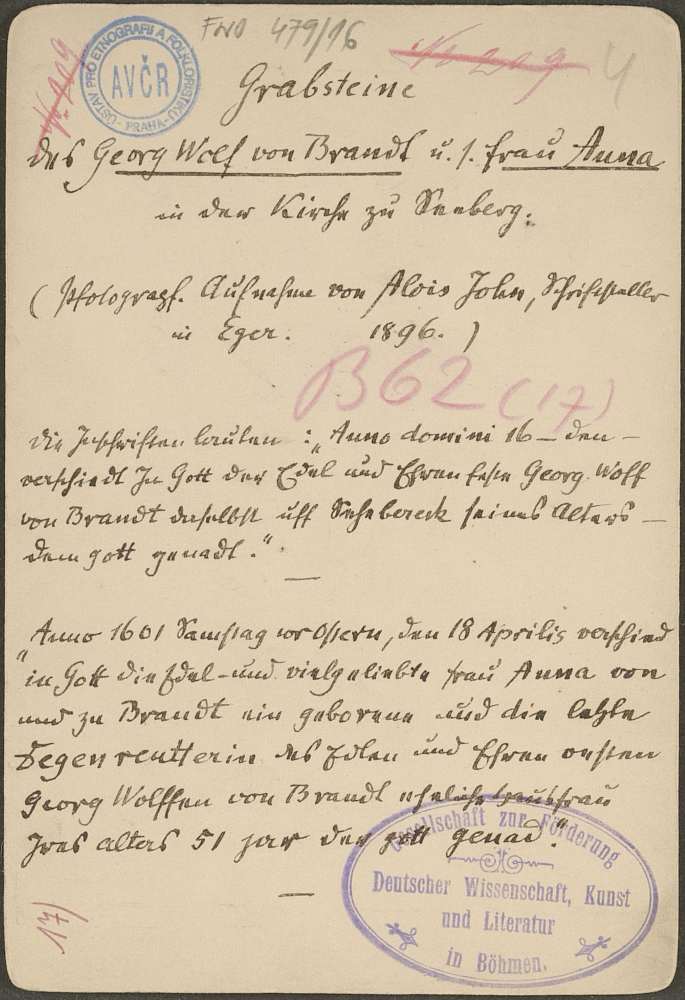 FWO 479/16
N. 209
N. 209
4
ÚSTAV PRO ETNOGRAFII A FOLKLORISTIKU
AVČR
- PRAHA -
Grabsteine
des Georg Wolf von Brandt u. s. Frau Anna
in der Kirche zu Seeberg.
(Photograpf. Aufnahme von Alois John, Schriftsteller
in Eger. 1896.)
B62 (17)
Die Inschriften lauten: „Anno domini 16 — den —
verschiedt In Gott der Edel und Ehrenfeste Georg Wolff
von Brandt daselbst uff Sehebereck seines Alters —
dem gott genadt."
—
„Anno 1601 Samstag vor Ostern, den 18 Aprilis verschied
in Gott die Edel und vielgeliebte Frau Anna von
und zu Brandt ein geborene und die letzte
Degenreutterin des Edlen und Ehren vesten
Georg Wolffen von Brandt eheliche Hausfrau
Ires alters 51 jar der gott genad."
—
17)
Gesellschaft zur Förderung
Deutscher Wissenschaft, Kunst
und Literatur
in Böhmen.